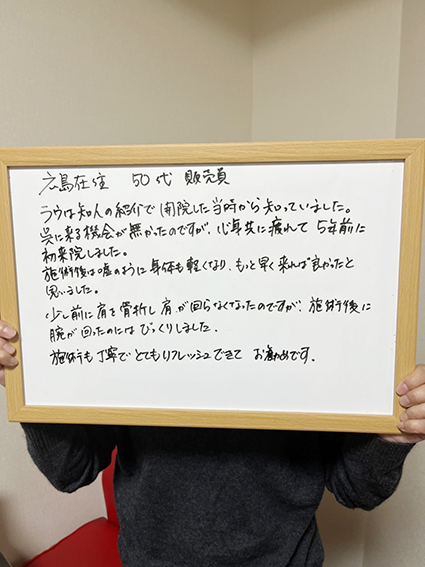 広島在住 50代 販売員
ラウは知人の紹介で開院した当時から知っていました。
呉に来る機会が無かったのですが、心身共に疲れて5年前に
初来院しました。
施術後は嘘のように身体も軽くなり、もっと早く来れば良かったと
思いました。
少し前に肩を骨折し肩が回らなくなったのですが、施術後に
腕が回ったのにはびっくりしました。
施術も丁寧でとてもリフレッシュできて お勧めです。